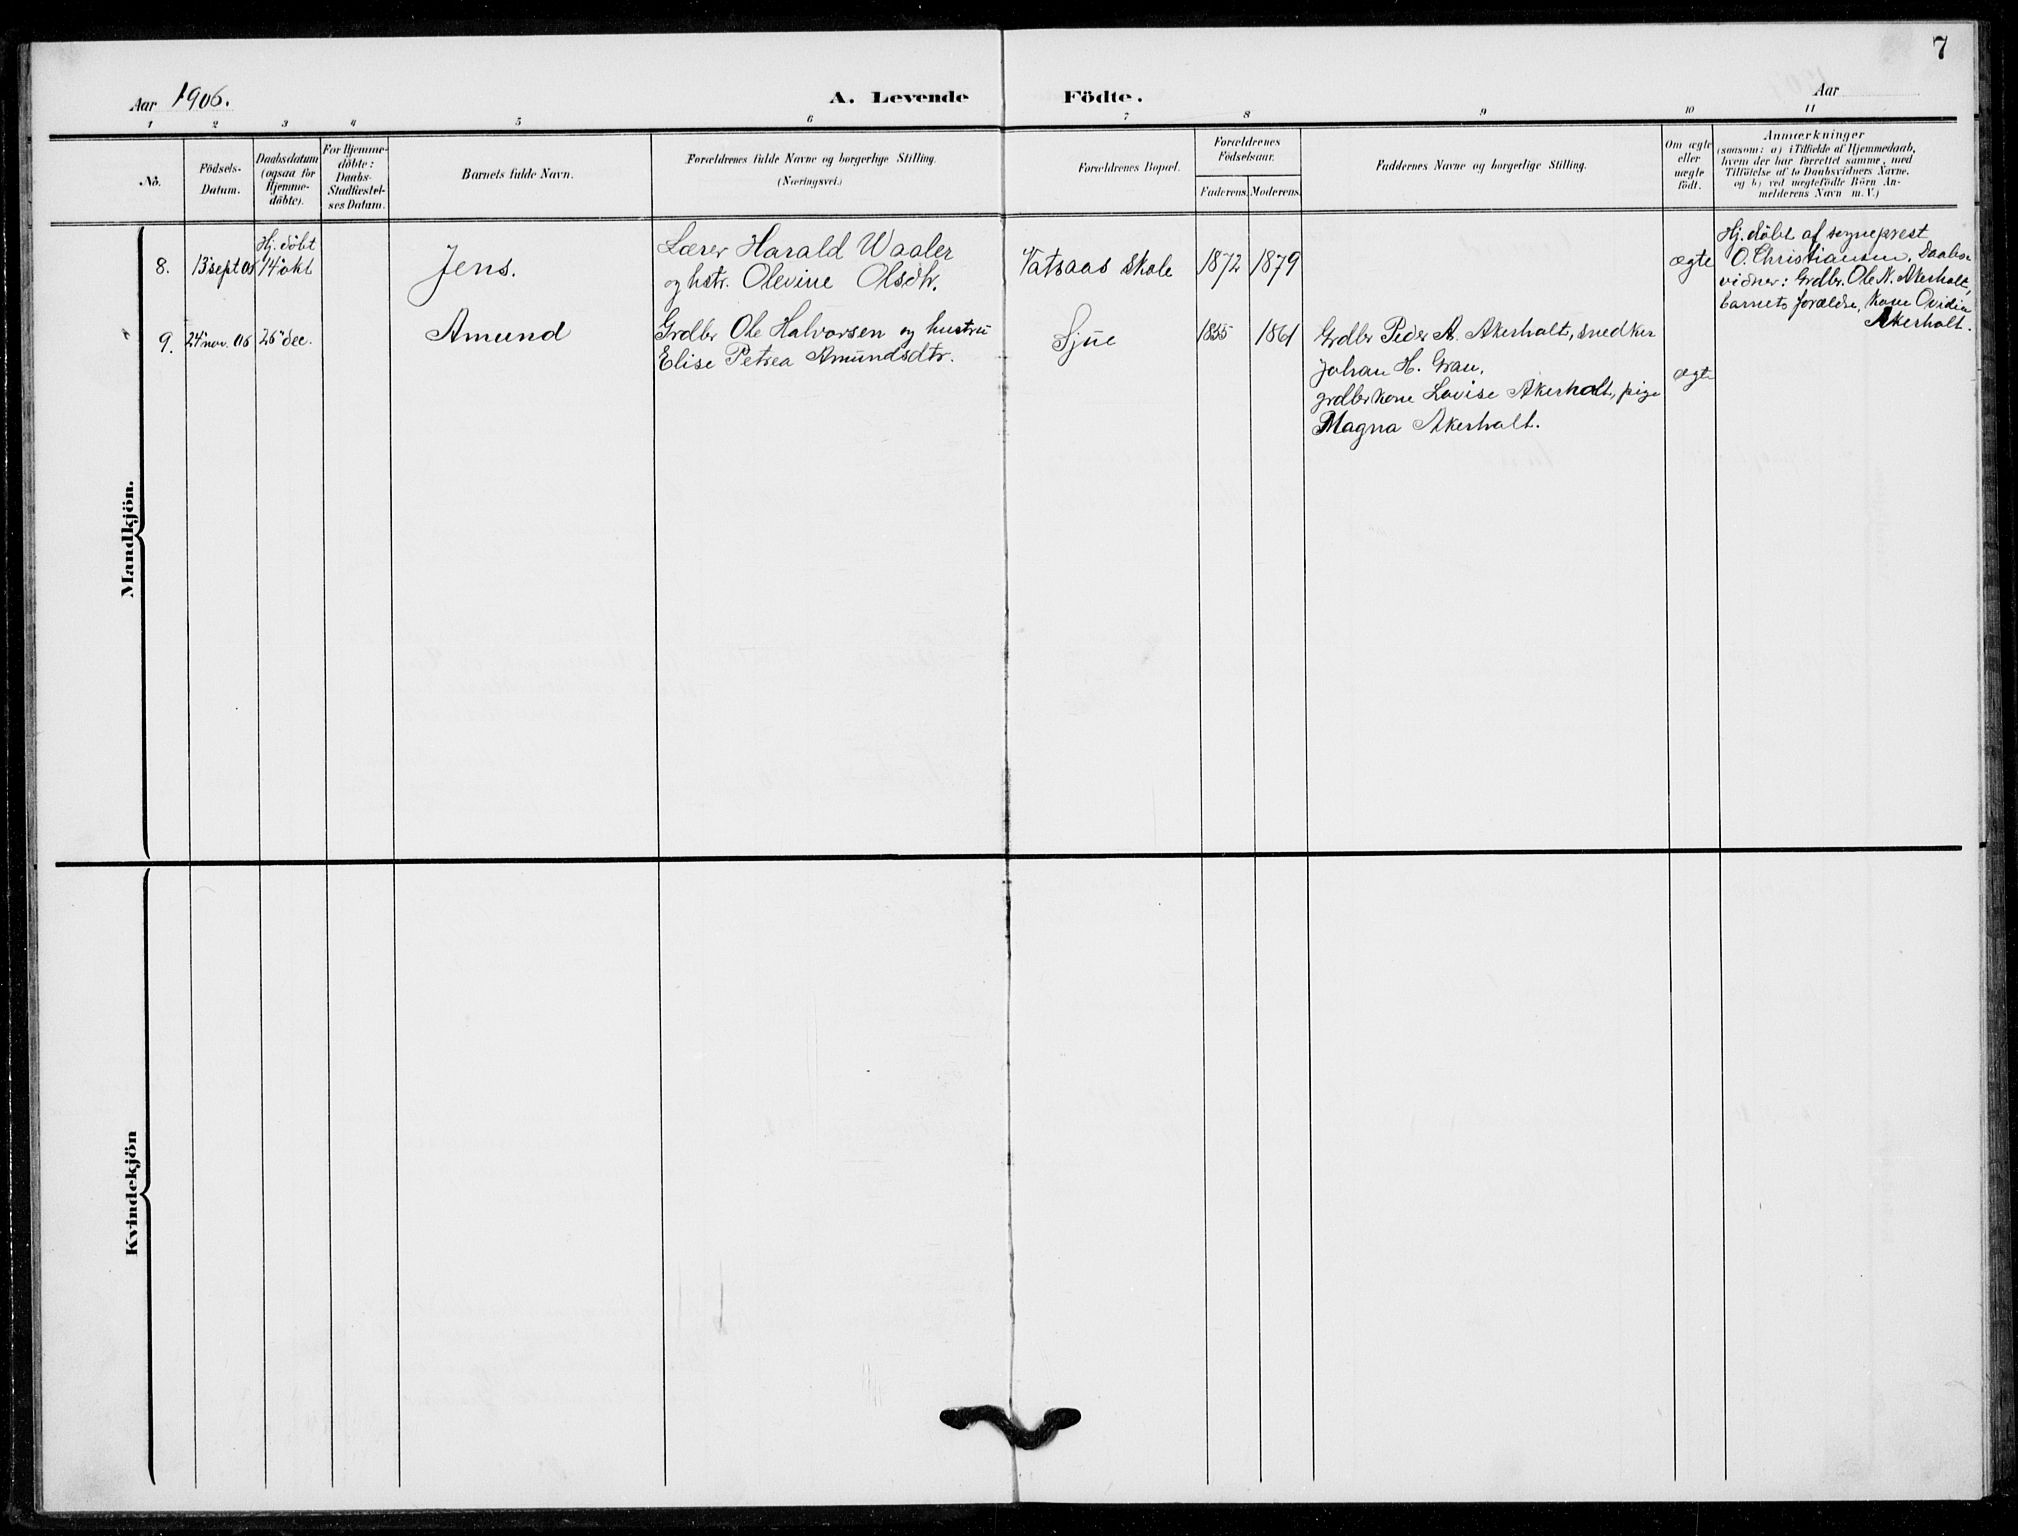 7
Aar 1906.
A. Levende Födte.
Aar
1 2 3 4 5 6 7 8 9 10 11
No.
Födsels-
Datum.
Daabsdatum
(ogsaa for
Hjemme-
döbte).
For Hjemme-
döbte:
Daabs-
Stadfæstel-
ses Datum.
Barnets fulde Navn.
Forældrenes fulde Navne og borgerlige Stilling.
(Næringsvei.)
Forældrenes Bopæl.
Forældrenes
Födselsaar.
Faderens. Moderens.
Faddernes Navne og borgerlige Stilling.
Om ægte
eller
uægte
födt.
Anmærkninger
(saasom: a) i Tilfælde af Hjemmedaab,
hvem der har forrettet samme, med
Tilföielse af to Daabsvidners Navne.
og b) ved uægtefödte Börn An-
melderens Navn m. V.)
Mandkjön.
8. 13 sept 06
Hj. döbt
14 okt
Jens.
Lærer Harald Waaler
og hstr. Olevine Olsdtr.
Vatsaas skole
1872 1879
ægte
Hj. döbt af sogneprest
O. Christiansen. Daabs-
vidner: Grdbr. Ole N. Akerholt,
barnets forældre, kone Ovidia
Akerholt.
9. 24 nov. 06 26 dec.
Amund
Grdbr Ole Halvorsen og hustru
Elise Petrea Amundsdtr.
Sjue
1855 1861
Grdbr Peder A. Akerholt, snedker
Johan H. Gran,
grdbrkone Lovise Akerholt, pige
Magna Akerholt.
ægte
Kvindekjön